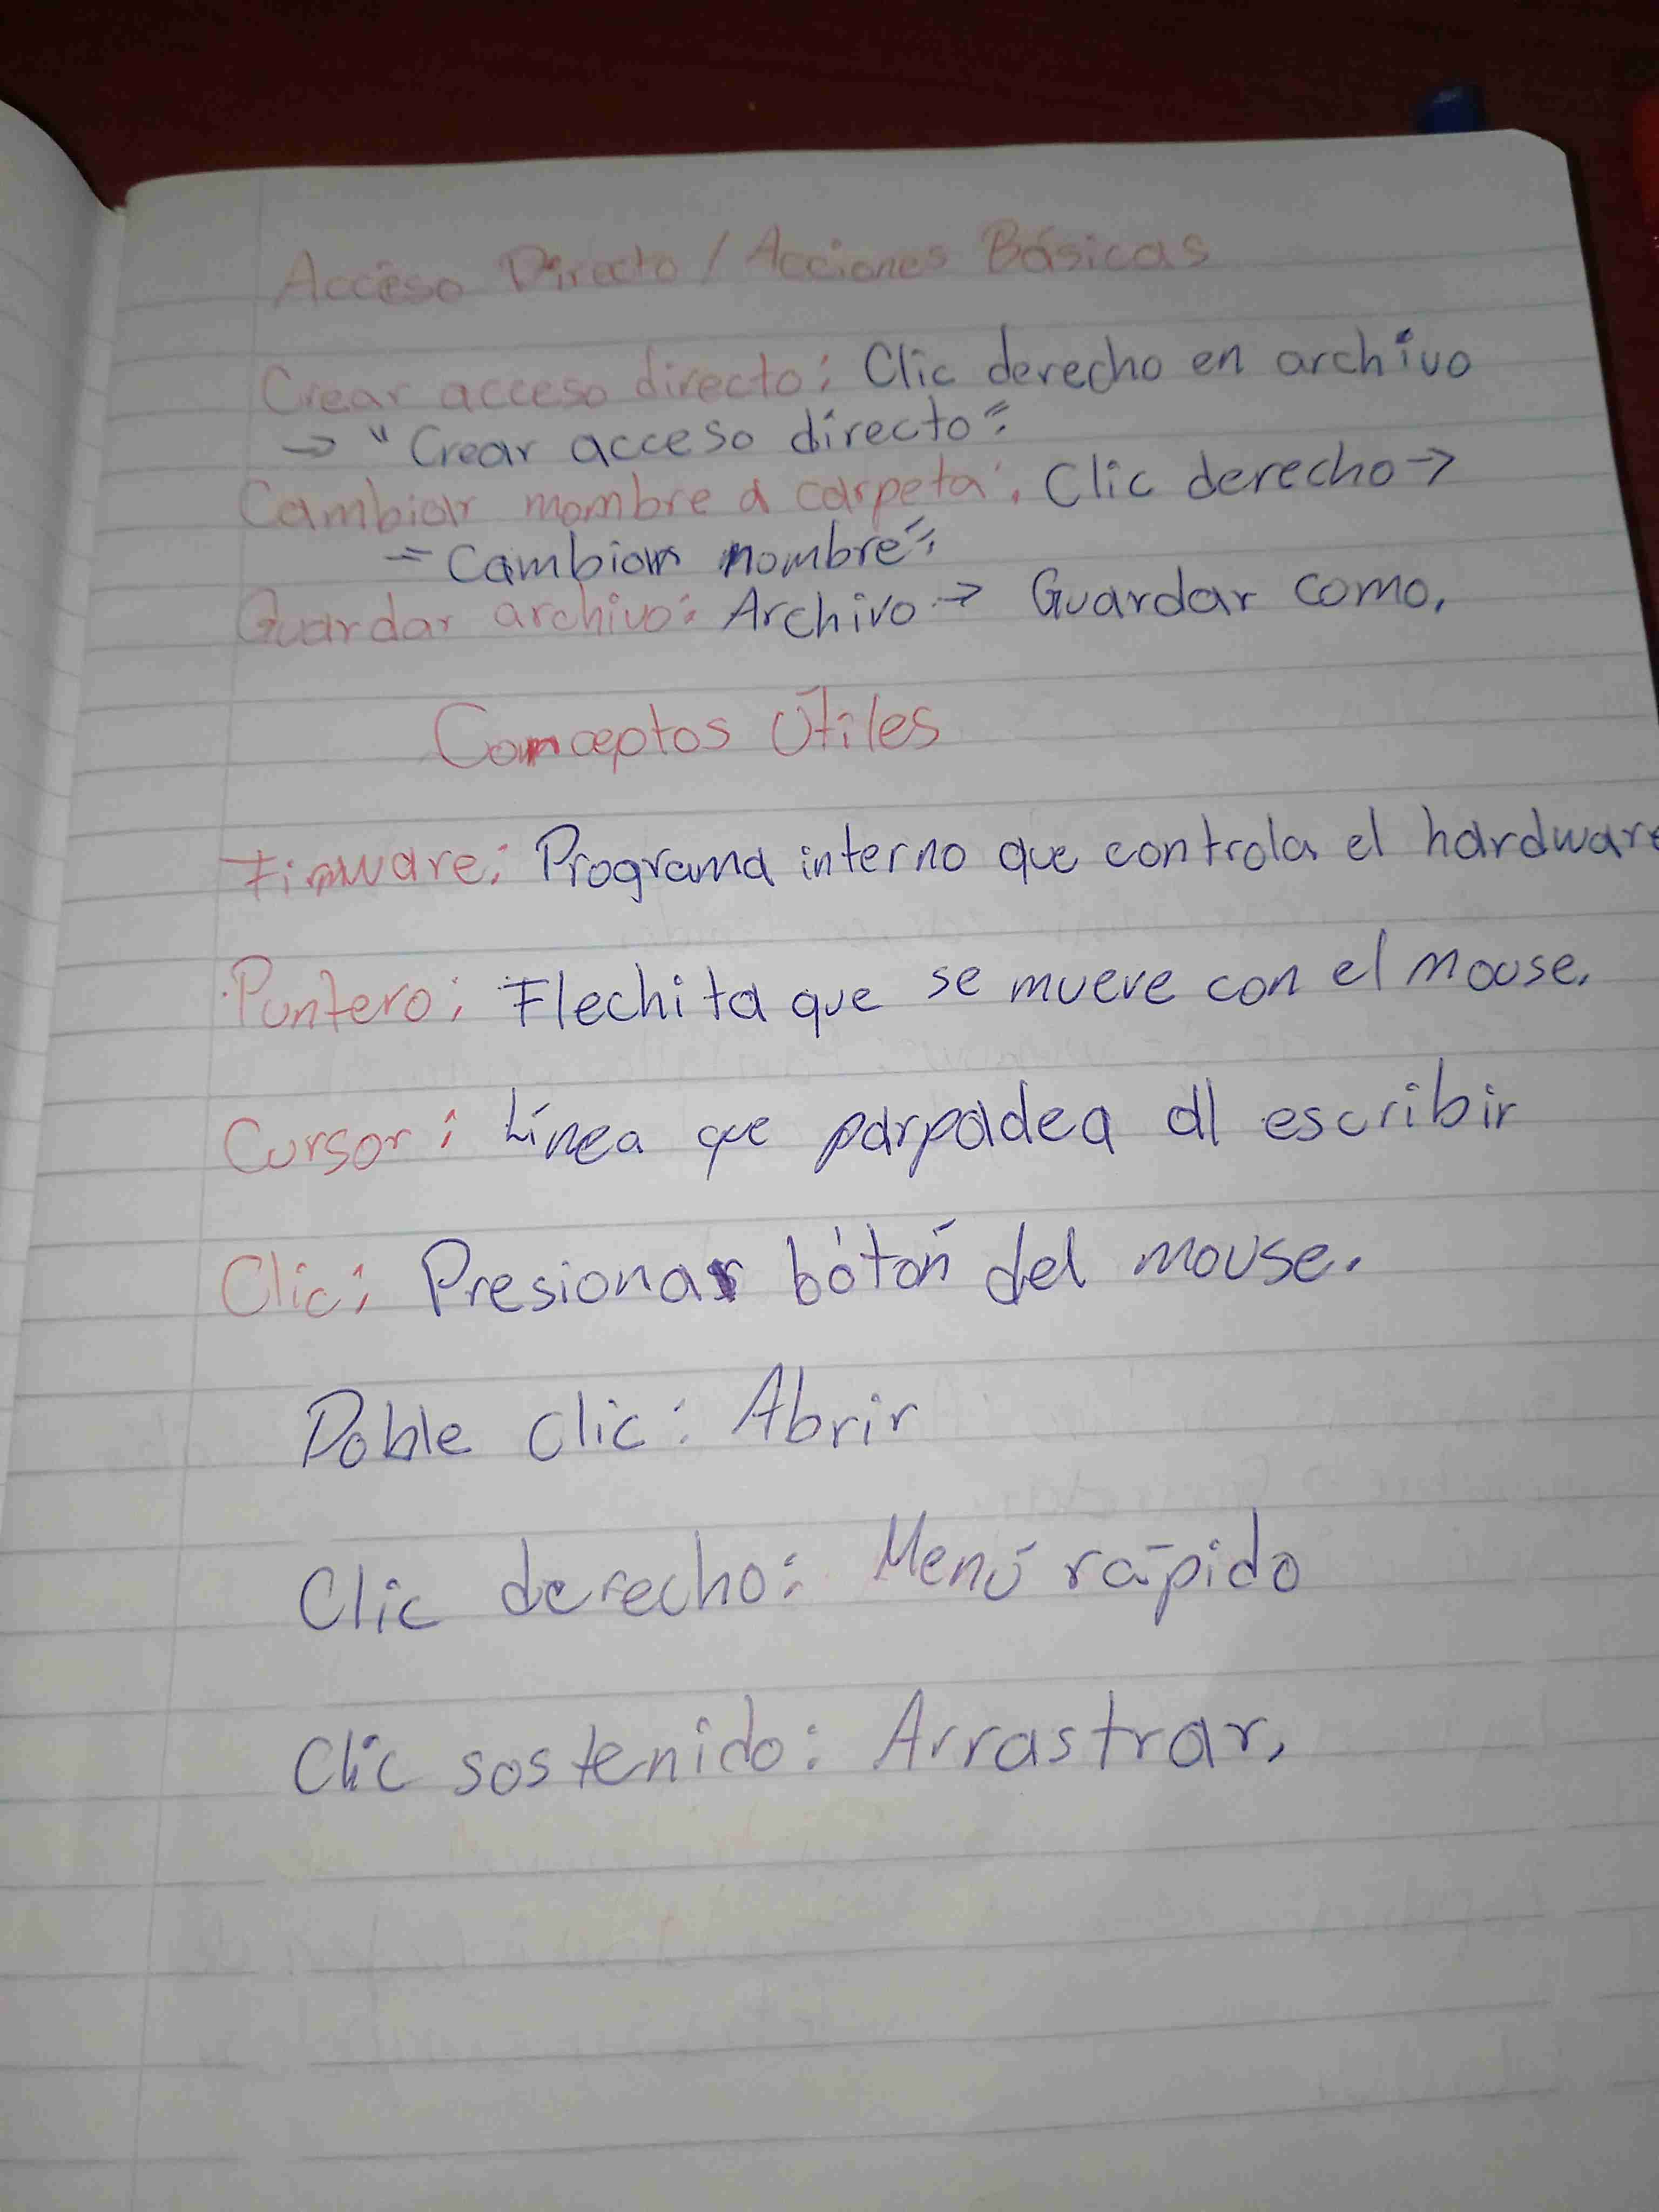 Acceso Directo / Acciones Básicas
Crear acceso directo: Clic derecho en archivo
→ "Crear acceso directo".
Cambiar nombre a carpeta: Clic derecho →
"Cambiar nombre".
Guardar archivo: Archivo → Guardar como.
Conceptos Útiles
Firmware: Programa interno que controla el hardware
Puntero: Flechita que se mueve con el mouse.
Cursor: Línea que parpadea al escribir
Clic: Presionar bótón del mouse.
Doble clic: Abrir
Clic derecho: Menú rápido
Clic sostenido: Arrastrar.